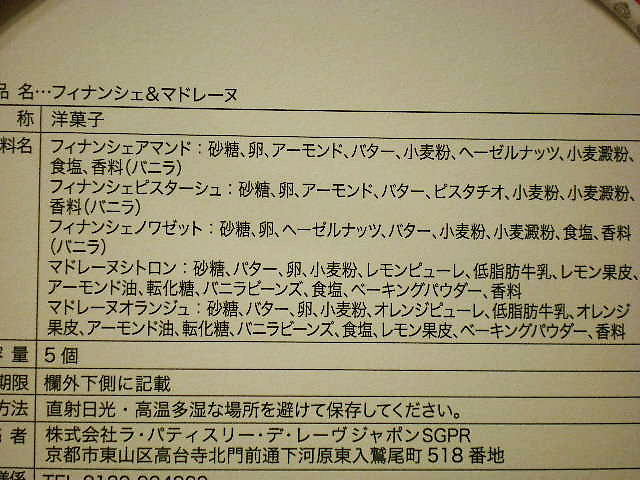 品名…フィナンシェ&マドレーヌ
称 洋菓子
料名 フィナンシェアマンド：砂糖、卵、アーモンド、バター、小麦粉、ヘーゼルナッツ、小麦澱粉、
食塩、香料(バニラ)
フィナンシェピスターシュ：砂糖、卵、アーモンド、バター、ピスタチオ、小麦粉、小麦澱粉、
香料(バニラ)
フィナンシェノワゼット：砂糖、卵、ヘーゼルナッツ、バター、小麦粉、小麦澱粉、食塩、香料
(バニラ)
マドレーヌシトロン：砂糖、バター、卵、小麦粉、レモンピューレ、低脂肪牛乳、レモン果皮、
アーモンド油、転化糖、バニラビーンズ、食塩、ベーキングパウダー、香料
マドレーヌオランジュ：砂糖、バター、卵、小麦粉、オレンジピューレ、低脂肪牛乳、オレンジ
果皮、アーモンド油、転化糖、バニラビーンズ、食塩、レモン果皮、ベーキングパウダー、香料
容量 5個
期限 欄外下側に記載
方法 直射日光・高温多湿な場所を避けて保存してください。
者 株式会社ラ・パティスリー・デ・レーヴジャポンSGPR
京都市東山区高台寺北門前通下河原東入鷲尾町518番地